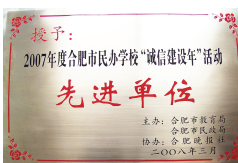 授予：
2007年度合肥市民办学校“诚信建设年”活动
先进单位
主办：合肥市教育局
合肥市民政局
协办：合肥晚报社
二〇〇八年三月